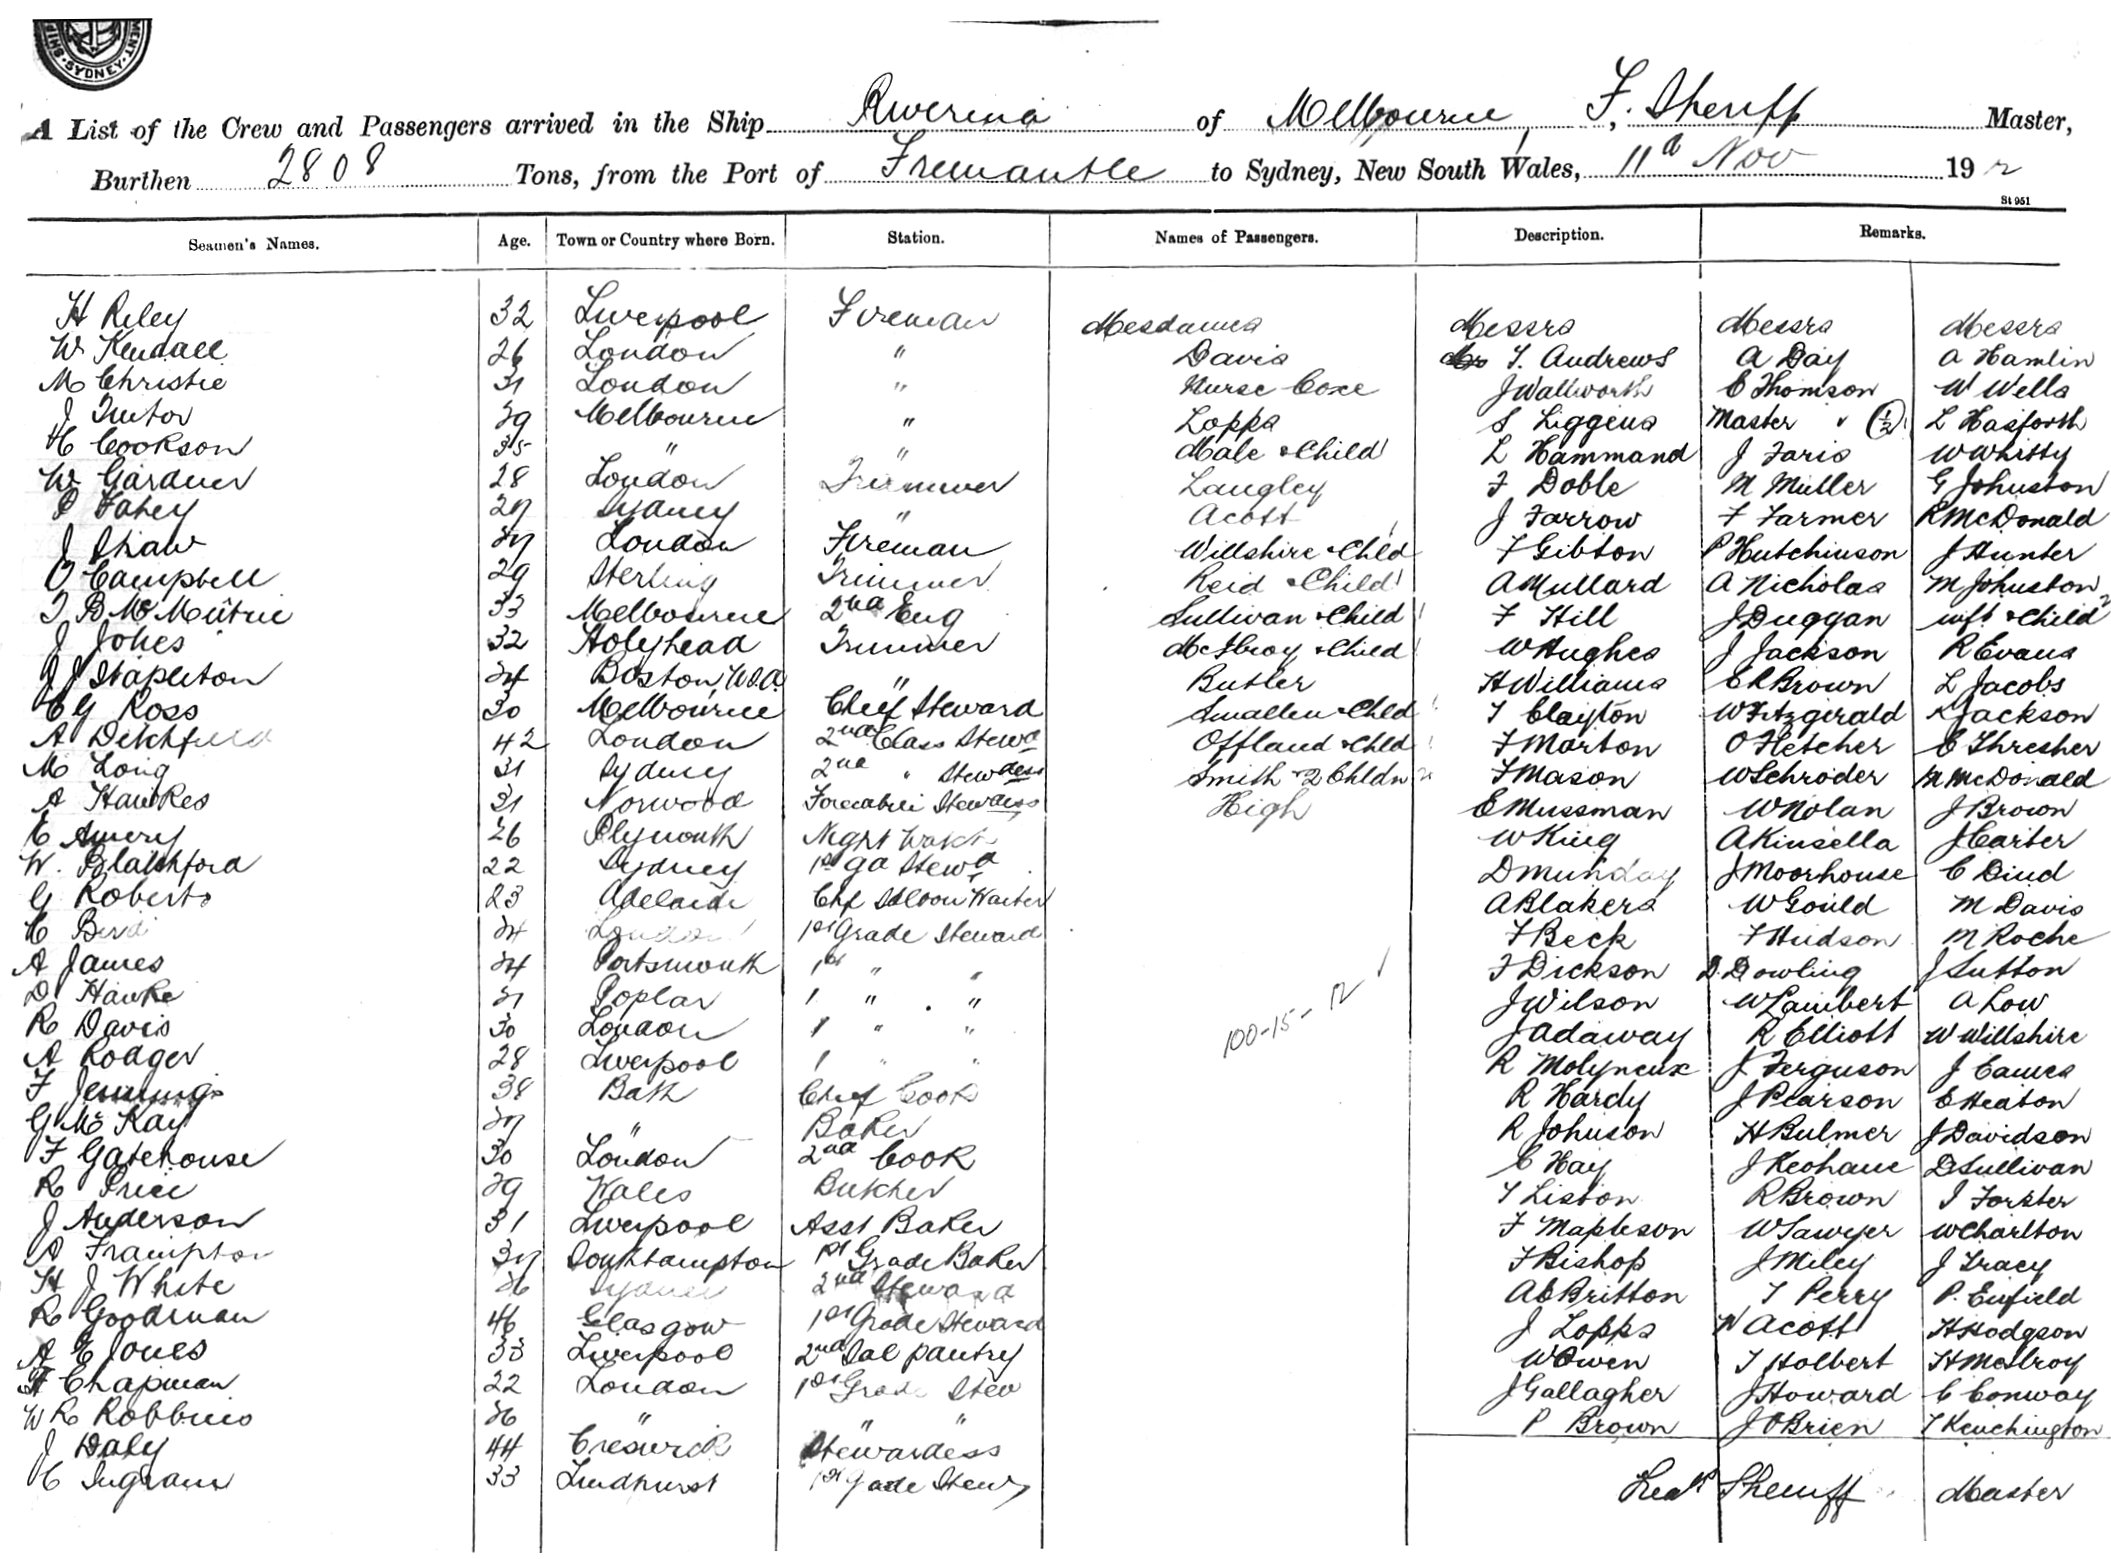 MENT · SYDNEY · SHIP
A List of the Crew and Passengers arrived in the Ship Riverina of Melbourne, F. Sheriff Master,
Burthen 2808 Tons, from the Port of Fremantle to Sydney, New South Wales, 11th Nov 192
St 951
Seamen's Names. Age. Town or Country where Born. Station. Names of Passengers. Description. Remarks.
H Riley 32 Liverpool Fireman Mesdames Messrs Messrs Messrs
W Kendall 26 London " Davis T. Andrews A Day A Hamlin
M Christie 31 London " Nurse Coxe J Wallworth C Thomson W Wells
J Tuitor 29 Melbourne " Lopps S Liggins Master " (1/2) L Hasforth
H Cookson 35 " " Male & Child L Hammand J Faris W Whitty
W Gardner 28 London Trimmer Langley F Doble M Muller G Johnston
P Fahey 27 Sydney " Acott J Farrow F Farmer R McDonald
J Shaw London Fireman Willshire & Chld F Gibton P Hutchinson J Hunter
O Campbell 29 Sterling Trimmer Reid & Child A Mullard A Nicholas M Johnston
T B McMeutrie 33 Melbourne 2nd Eng Sullivan & Child F Hill J Duggan wife & Child
J Jones 32 Holyhead Trimmer McIlroy & Child W Hughes J Jackson R Evans
J J Stapleton 24 Boston, U.S.A. " Butler H Williams E R Brown L Jacobs
E G Ross 30 Melbourne Chief Steward Smallen & Chld T Clayton W Fitzgerald K Jackson
A Ditchfield 42 London 2nd Class Stewd Offland & Chld F Marton O Fletcher E Thresher
M Long 31 Sydney 2nd " Stewdess Smith & 2 Chldn F Mason W Schroder M McDonald
A Hawkes 31 Norwood Forecabin Stewdess High E Mussman W Nolan J Brown
C Amery 26 Plymouth Night Watch W King A Kinsella J Carter
W. Blatchford 22 Sydney 1st Ga Stewd D Munday J Moorhouse C Dind
G Roberts 23 Adelaide Chf Saloon Waiter A Blakers W Gould M Davis
C Bird 24 London 1st Grade Steward F Beck F Hudson M Roche
A James 24 Portsmouth 1st " " F Dickson D. Dowling J Sutton
D Hawke 21 Poplar 1 " " J Wilson W Lambert A Low
R Davis 30 London 1 " " 100-15-12 J Adaway R Elliott W Willshire
A Rodger 28 Liverpool 1 " " R Molyneux J Ferguson J Eames
F Jennings 38 Bath Chief Cook R Hardy J Pearson E Heaton
G McKay " Baker R Johnson H Bulmer J Davidson
F Gatehouse 30 London 2nd Cook C Hay J Keohane D Sullivan
R Price 29 Wales Butcher T Liston R Brown J Forster
J Anderson 31 Liverpool Asst Baker F Mapleson W Sawyer W Charlton
Frampton 37 Southampton 1st Grade Baker F Bishop J Miley J Tracy
H J White 26 Sydney 2nd Steward A E Britton T Perry P. Enfield
R Goodman 46 Glasgow 1st Grade Steward J Lopps W Acott H Hodgson
A E Jones 33 Liverpool 2nd Sal pantry W Owen T Holbert H McIlroy
Chapman 22 London 1st Grade Stew J Gallagher J Howard C Conway
W R Robbins 26 " " " P Brown J O'Brien T Kenchington
J Daly 44 Creswick Stewardess
C Ingram 33 Lindhurst 1st Grade Stew Fredk Sheriff Master